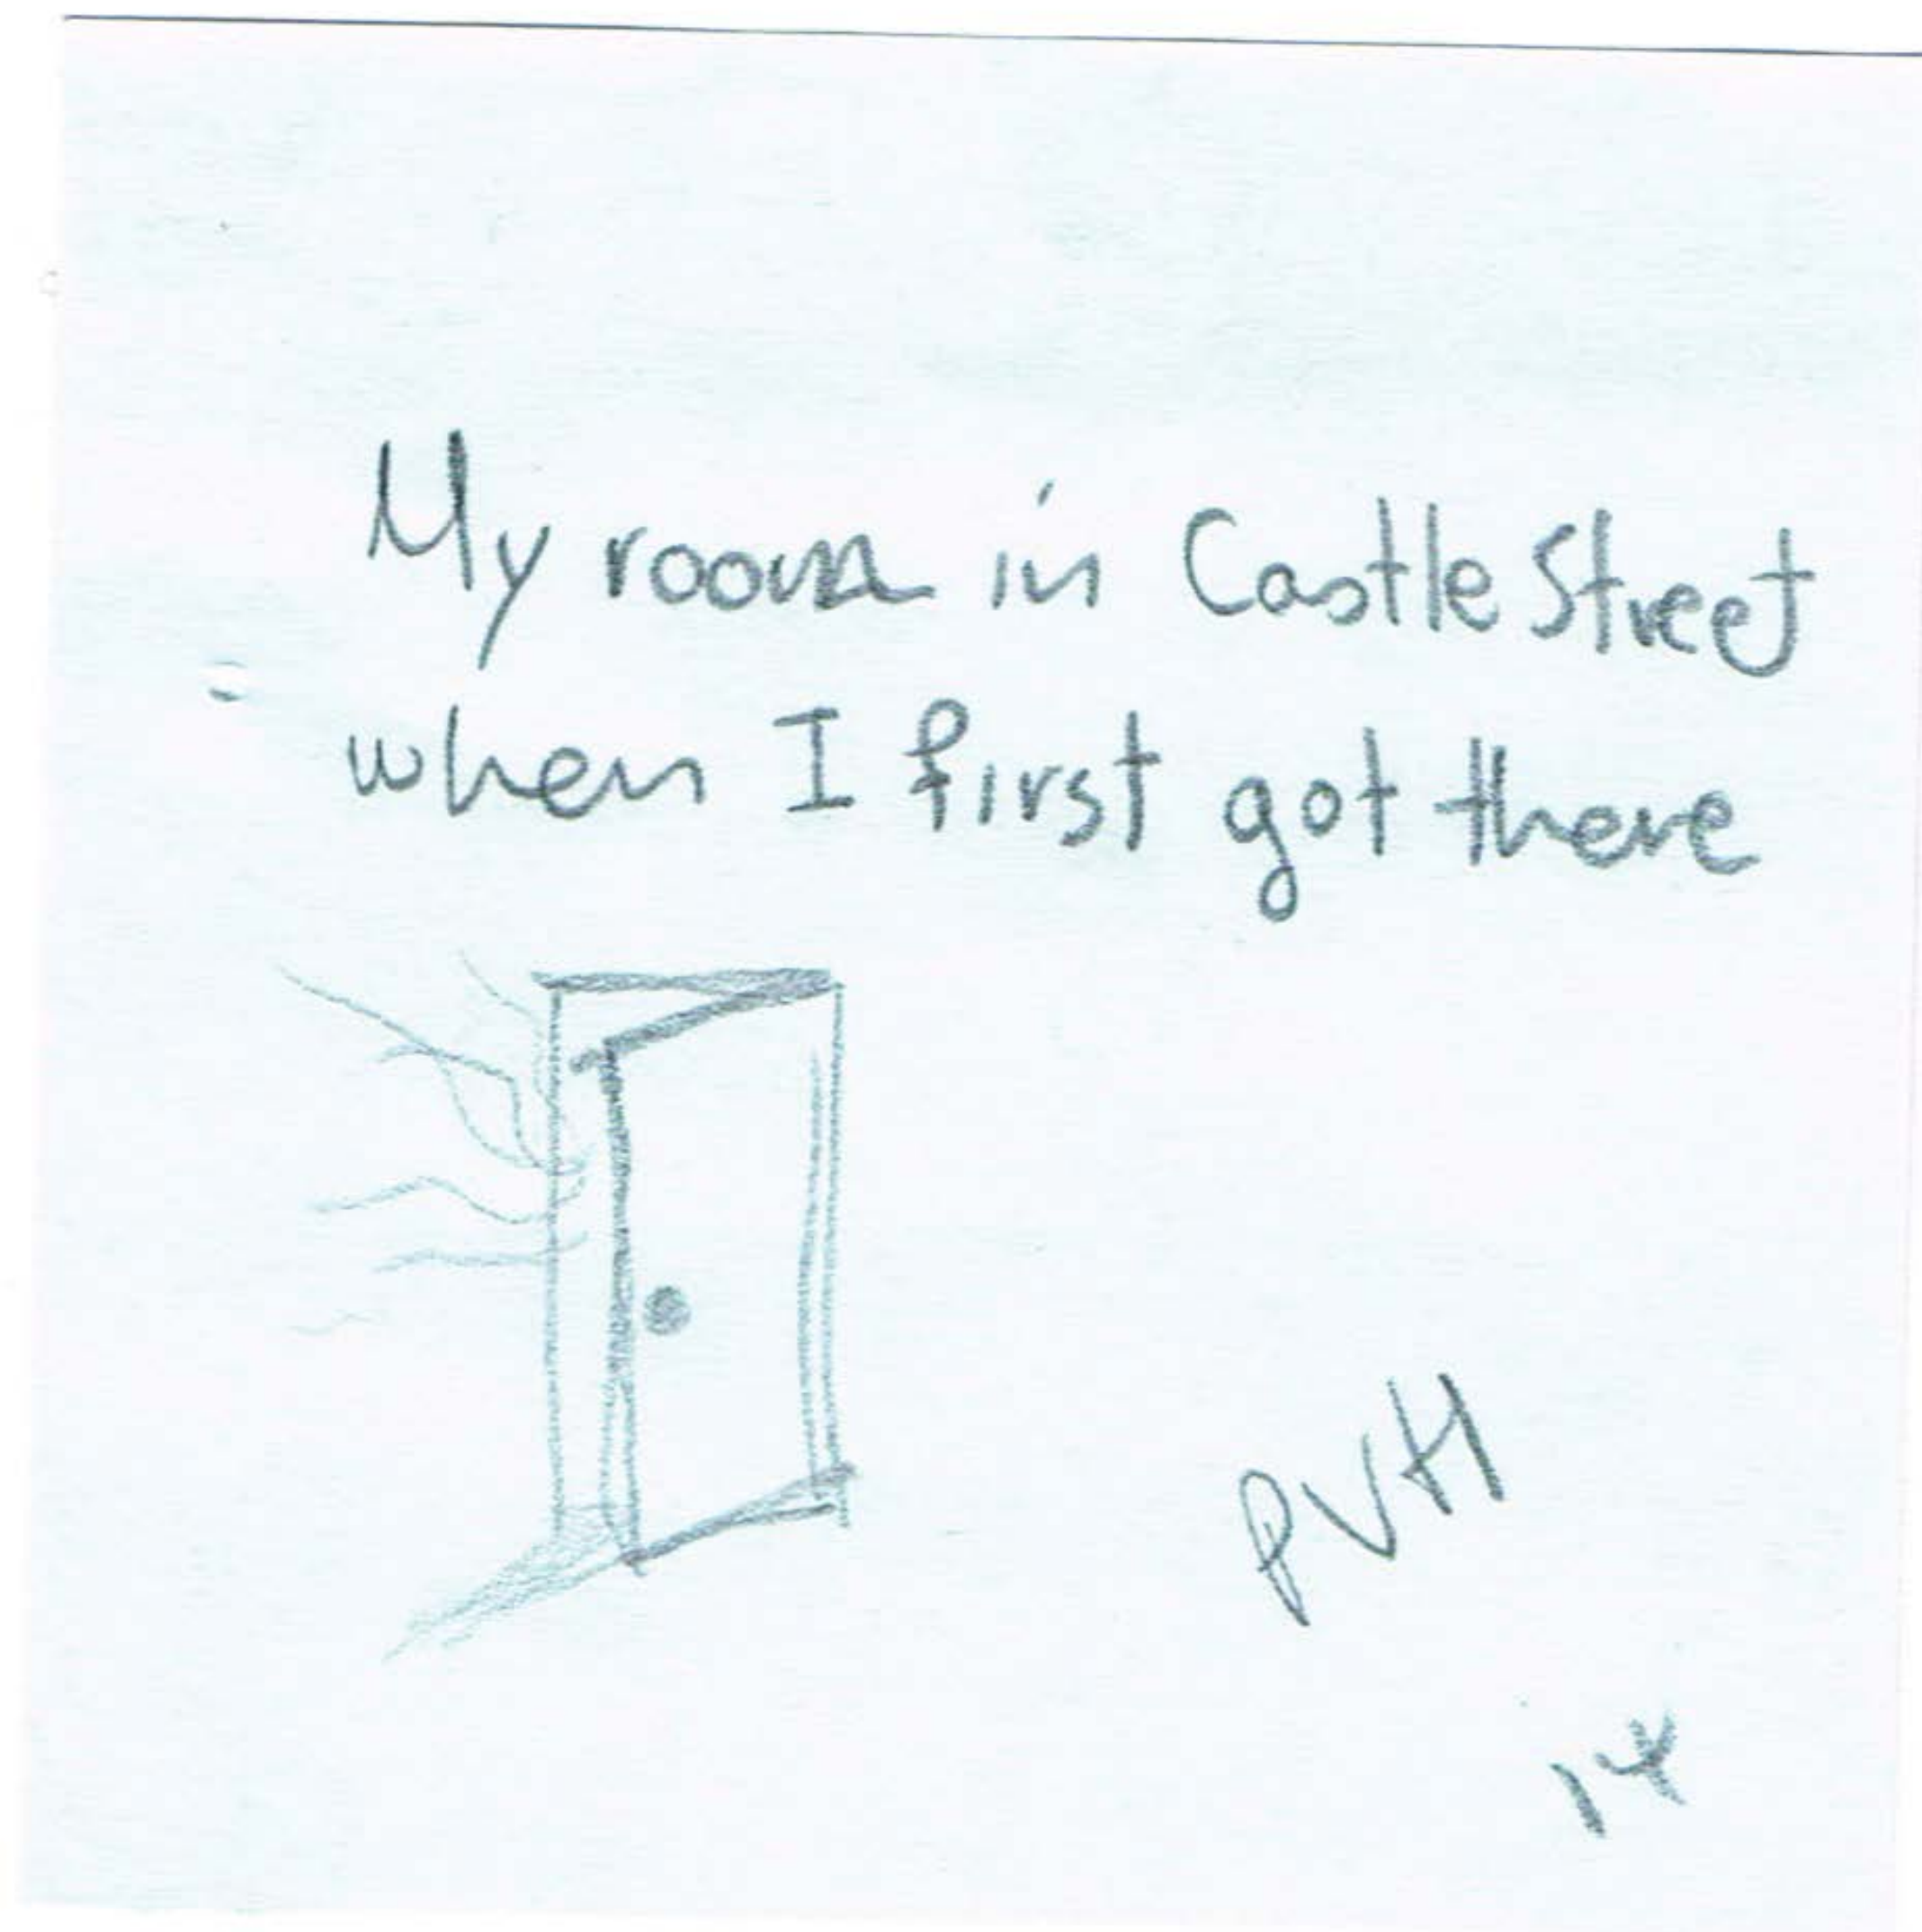 My room in Castle Street
when I first got there
PVH
14